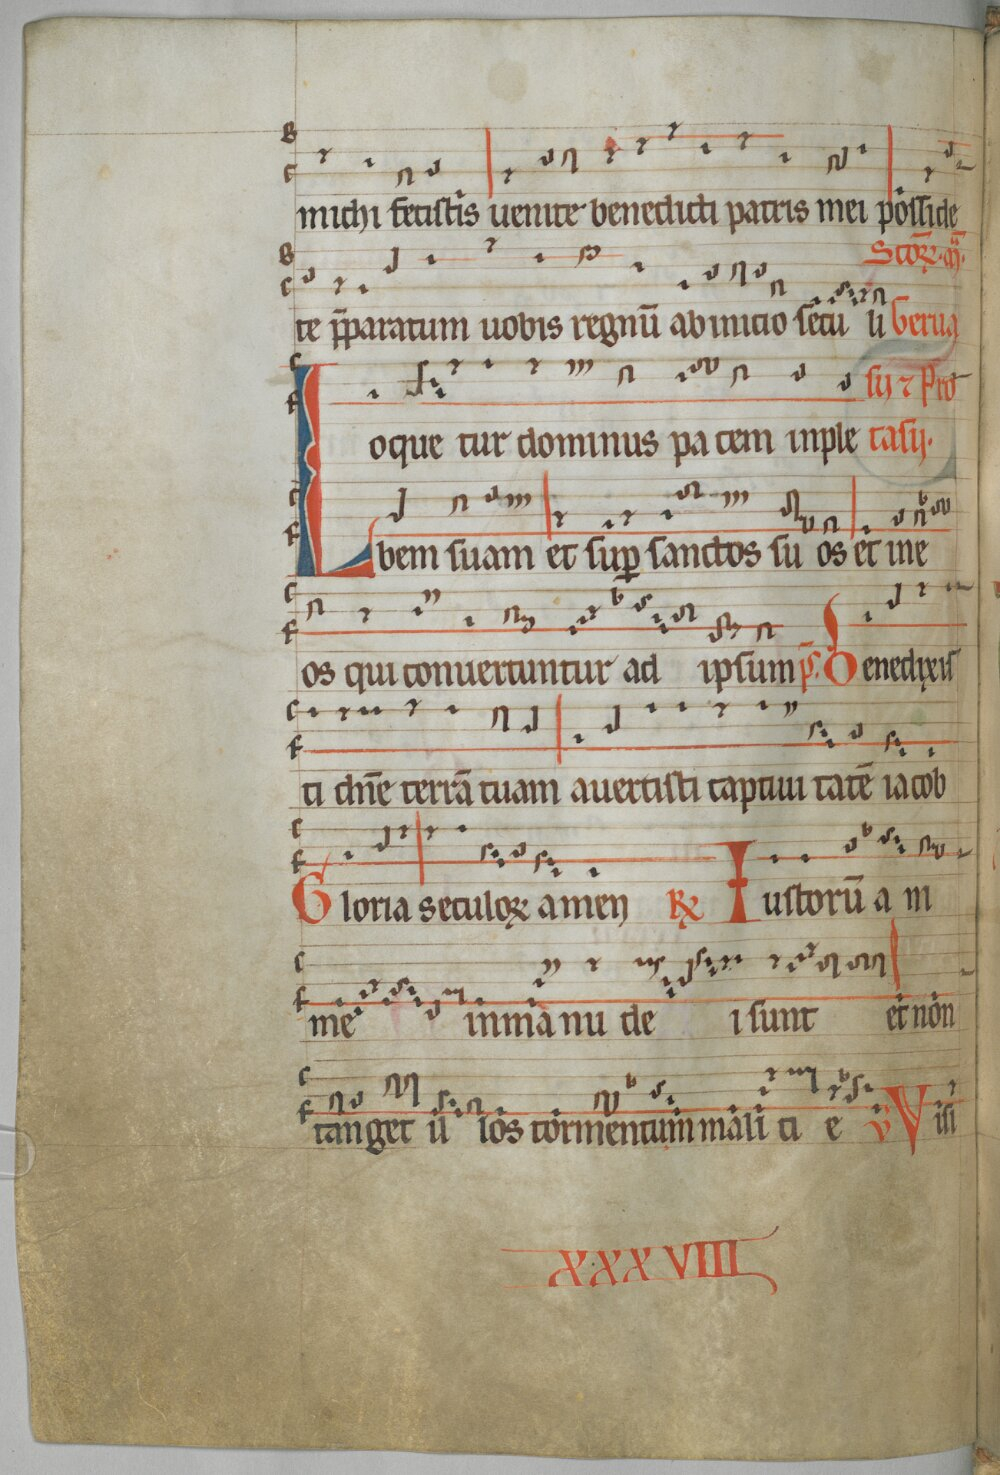 michi fecistis uenite benedicti patris mei posside
te p̄paratum uobis regnū ab inicio secu li
Scōꝝ. m̄.
Gerua
sij ⁊ Pro
tasij.
Loque tur dominus pa cem in ple
bem suam et sup̱ sanctos su os et in e
os qui conuertuntur ad ipsum p̄s. Benedixis
ti dn̄e terrā tuam auertisti captiui tatē iacob
Gloria seculoꝝ amen ℟ Iustorū a ni
me in ma nu de i sunt et non
tanget il los tormentum mali ti e ℣ Visi
XXXVIIII